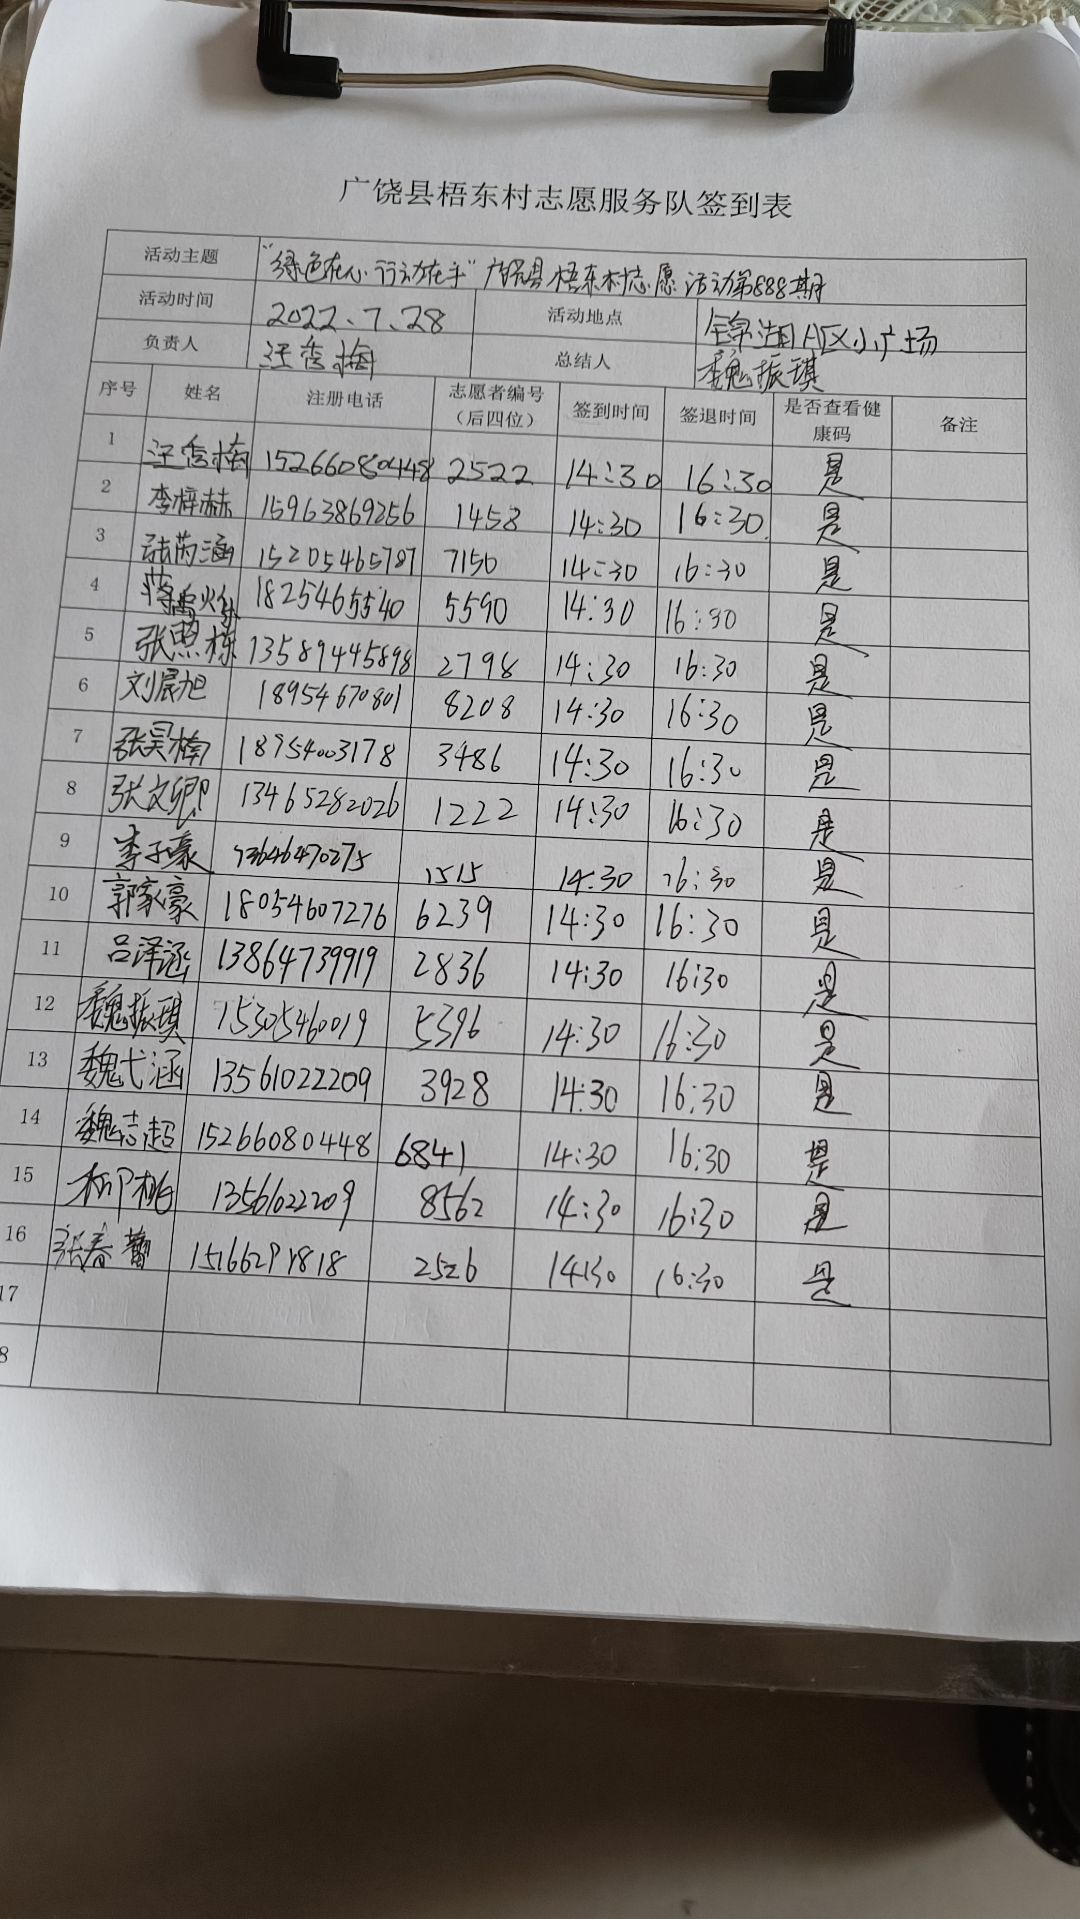 广饶县梧东村志愿服务队签到表
活动主题 "绿色在心 行动在手" 广饶县梧东村志愿活动第888期
活动时间 2022.7.28 活动地点 锦湖A区小广场
负责人 汪秀梅 总结人 魏振琪
序号 姓名 注册电话 志愿者编号（后四位） 签到时间 签退时间 是否查看健康码 备注
1 汪秀梅 15266080448 2522 14:30 16:30 是
2 李梓赫 15963869256 1458 14:30 16:30 是
3 张芮涵 15205465787 7150 14:30 16:30 是
4 1825465540 5590 14:30 16:30 是
5 张照栋 13589445898 2798 14:30 16:30 是
6 刘宸旭 18954670801 8208 14:30 16:30 是
7 张昊楠 18954003178 3486 14:30 16:30 是
8 张文卿 13465282026 1222 14:30 16:30 是
9 李子豪 13646470275 1515 14:30 16:30 是
10 郭家豪 18054607276 6239 14:30 16:30 是
11 吕泽涵 13864739919 2836 14:30 16:30 是
12 魏振琪 15305460019 5396 14:30 16:30 是
13 魏弋涵 13561022209 3928 14:30 16:30 是
14 魏志超 15266080448 6841 14:30 16:30 是
15 13561022209 8562 14:30 16:30 是
16 张春蕾 2526 14:30 16:30 是
17
8